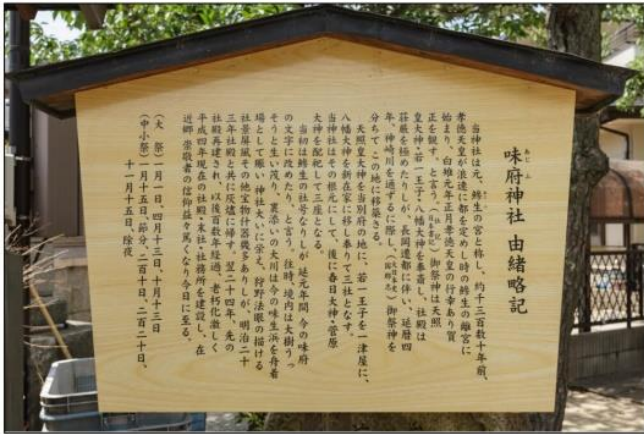 あじふ
味府神社 由緒略記
当神社は元、鯵生の宮と称し、約千三百数十年前、
孝徳天皇が浪速に都を定めし時の鯵生の離宮に
始まり、白雉元年正月孝徳天皇の行幸あり賀
正を観す、と言う。(社記)(日本書記)御祭神は天照
皇大神・若一王子・八幡大神を奉斎し、社殿は
荘厳を極めたりしが、長岡遷都に伴い、延暦四
年、神崎川を通ずるに際し、(大日本史)(国郡志)御祭神を
分ちて、この地に移築さる。
天照皇大神を当別府の地に、若一王子を一津屋に、
八幡大神を新在家に移し奉りて三社となす。
当神社はその根元にして、後に春日大神・菅原
大神を配祀して三座となる。
当初は鯵生の社号なりしが延元年間、今の味府
の文字に改めたり、と言う。往時、境内は大樹うっ
そうと生い茂り、裏添いの大川は今の味生浜を舟着
場として賑い、神社大いに栄え、狩野法眼の描ける
社景屏風その他宝物什器幾多ありしが、明治二十
三年社殿と共に灰燼に帰す。翌二十四年、先の
社殿再建され、以後百数年経過、老朽化激しく
平成四年現在の社殿・末社・社務所を建設し、在
近郷 崇敬者の信仰益々篤くなり今日に至る。
(大 祭)一月一日、四月十三日、十月十三日
(中小祭)一月十五日、節分、二百十日、二百二十日、
十一月十五日、除夜